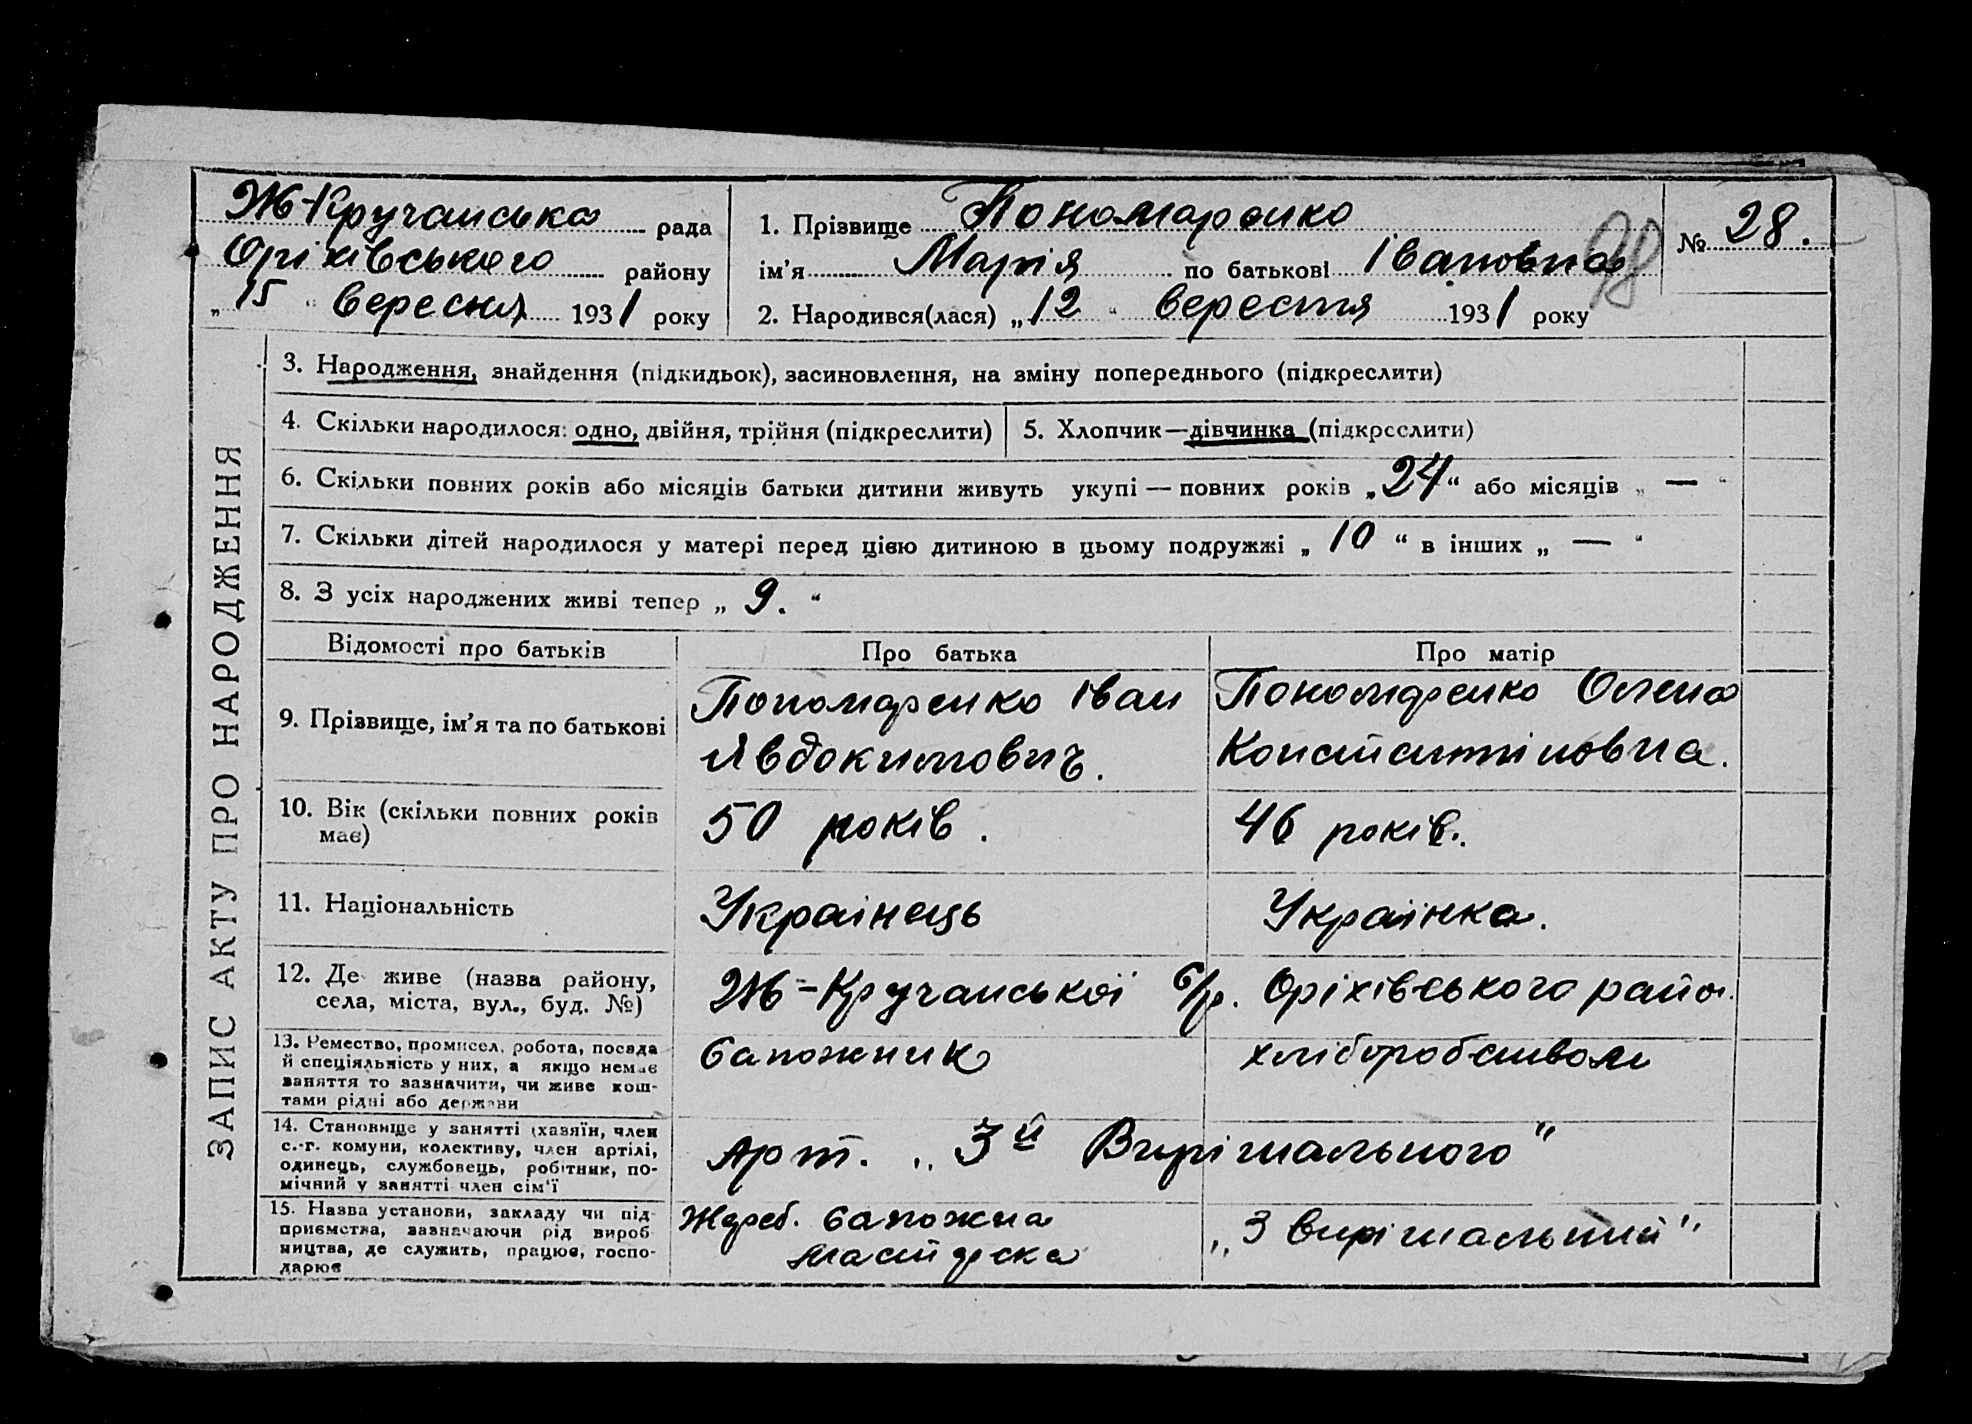 Ж-Кручанська рада
Оріхівського району
„15“ Вересня 1931 року
1. Прізвище Пономаренко
ім’я Марія по батькові Івановна
2. Народився(лася) „12“ Вересня 1931 року
№ 28.
98
ЗАПИС АКТУ ПРО НАРОДЖЕННЯ
3. Народження, знайдення (підкидьок), засиновлення, на зміну попереднього (підкреслити)
4. Скільки народилося: одно, двійня, трійня (підкреслити)
5. Хлопчик—дівчинка (підкреслити)
6. Скільки повних років або місяців батьки дитини живуть укупі — повних років „24“ або місяців „—“
7. Скільки дітей народилося у матері перед цією дитиною в цьому подружжі „10“ в інших „—“
8. З усіх народжених живі тепер „9.“
Відомості про батьків
Про батька
Про матір
9. Прізвище, ім’я та по батькові
Пономаренко Іван
Явдокимович.
Пономаренко Олена
Константіновна.
10. Вік (скільки повних років
має)
50 років.
46 років.
11. Національність
Украінець
Украінка.
12. Де живе (назва району,
села, міста, вул., буд. №)
Ж-Кручанської с/р. Оріхівського район.
13. Ремество, промисел, робота, посада
й спеціяльність у них, а якщо немає
заняття то зазначити, чи живе кош-
тами рідні або держави
сапожник
хліборобством
14. Становище у занятті (хазяїн, член
с.-г. комуни, колективу, член артілі,
одинець, службовець, робітник, по-
мічний у занятті член сім’ї
Арт. „3й Вирішального“
15. Назва установи, закладу чи під-
приємства, зазначаючи рід вироб-
ництва, де служить, працює, госпо-
дарює
Жереб. сапожна
мастерска
„3 вирішальний“